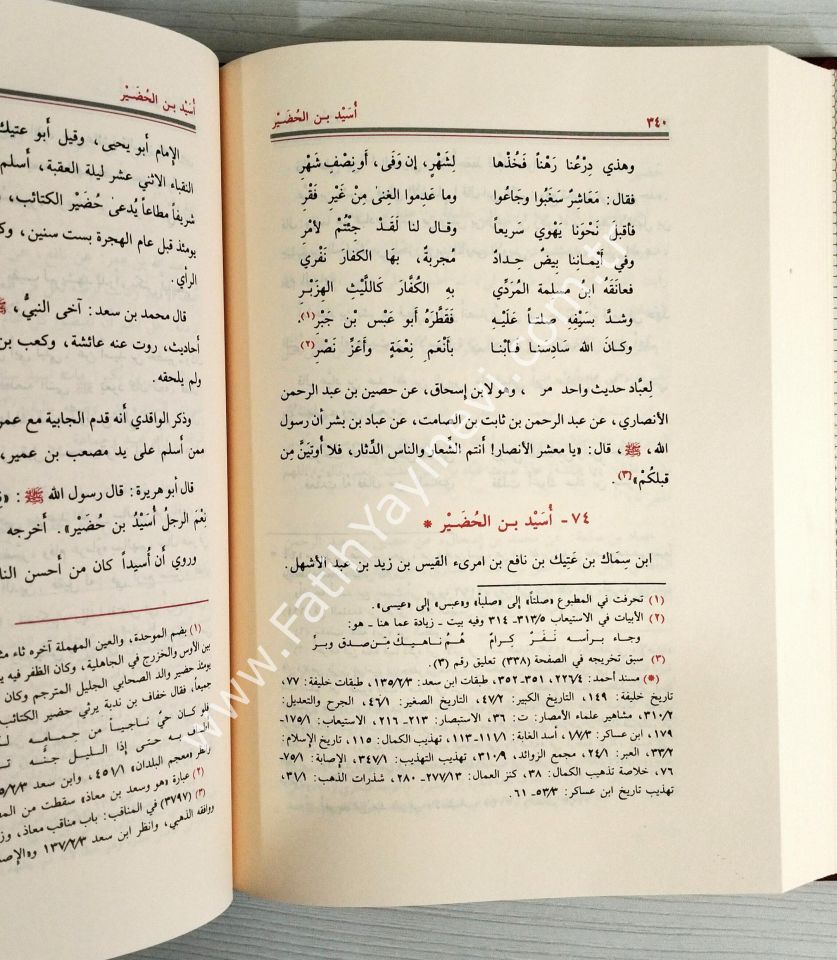 أُسَيْد بن الحُضَيْر
٣٤٠
وهذي دِرْعُنا رَهْناً فَخُذْها لِشَهْرٍ، إن وَفَى، أو نِصْفِ شَهْرِ
فقال: مَعَاشِرٌ سَغَبُوا وجَاعُوا وما عَدِموا الغِنى مِنْ غَيْرِ فَقْرِ
فأقبَلَ نَحْوَنا يَهْوي سَريعاً وقال لنا لَقَدْ جِئْتُمْ لأمْرِ
وفي أَيْمانِنا بيضٌ حِدادٌ مُجربةٌ، بهَا الكفارَ نَفْري
فعانَقَهُ ابن مسلمة المُرَدِّي بهِ الكُفَّارَ كَاللَّيْثِ الهِزَبْرِ
وشدَّ بسَيْفِهِ صلتاً عَلَيْهِ فَقَطَّرَهُ أبو عَبْس بْن جَبْرِ(١).
وكانَ الله سَادِسنا فأبْنا بأنْعَمِ نِعْمَةٍ وأعَزِّ نَصْرِ(٢)
لِعبَّاد حديث واحد مر، وهو لابن إسحاق، عن حصين بن عبد الرحمن
الأنصاري، عن عبد الرحمن بن ثابت بن الصامت، عن عباد بن بشر أن رسول
الله، ﷺ، قال: «يا معشر الأنصار! أنتم الشِّعار والناس الدِّثار، فلا أُوتَيَنَّ مِن
قبلكُمْ»(٣).
٧٤- أُسَيْد بن الحُضَيْر *
ابن سِمَاك بن عَتِيك بن نافع بن امرىء القيس بن زيد بن عبد الأشهل.
(١) تحرفت في المطبوع «صلتاً» إلى «صلباً» و«عبس» إلى «عيسى».
(٢) الأبيات في الاستيعاب ٣١٣/٥- ٣١٤ وفيه بيت - زيادة عما هنا - هو:
وجاء برأسه نَفَرٌ كِرامٌ هُم ناهيك مِن صدق وبرِّ
(٣) سبق تخريجه في الصفحة (٣٣٨) تعليق رقم (٣).
(*) مسند أحمد: ٢٢٦/٤، ٣٥١- ٣٥٢، طبقات ابن سعد: ١٣٥/٢/٣، طبقات خليفة: ٧٧،
تاريخ خليفة: ١٤٩، التاريخ الكبير: ٤٧/٢، التاريخ الصغير: ٤٦/١، الجرح والتعديل:
٣١٠/٢، مشاهير علماء الأمصار: ت: ٣٦، الاستبصار: ٢١٣- ٢١٦، الاستيعاب: ١٧٥/١-
١٧٩، ابن عساكر: ١/٧/٣، أسد الغابة: ١١١/١- ١١٣، تهذيب الكمال: ١١٥، تاريخ الإسلام:
٣٣/٢، العبر: ٢٤/١، مجمع الزوائد: ٣١٠/٩، تهذيب التهذيب: ٣٤٧/١، الإصابة: ٧٥/١-
٧٦، خلاصة تذهيب الكمال: ٣٨، كنز العمال: ٢٧٧/١٣- ٢٨٠، شذرات الذهب: ٣١/١،
تهذيب تاريخ ابن عساكر: ٥٣/٣- ٦١.
أُسَيْد بن الحُضَيْر
الإمام أبو يحيى، وقيل أبو عتيك
النقباء الاثني عشر ليلة العقبة، أسلم
شريفاً مطاعاً يُدعى حُضَيْر الكتائب،
يومئذ قبل عام الهجرة بست سنين،
الرأي.
قال محمد بن سعد: آخى النبيُّ، ﷺ
أحاديث، روت عنه عائشة، وكعب بن
ولم يلحقه.
وذكر الواقدي أنه قدم الجابية مع عمر
ممن أسلم على يد مصعب بن عمير،
قال أبو هريرة: قال رسول الله ﷺ:
نِعْمَ الرجلُ أُسَيْدُ بن حُضَيْر». أخرجه
وروي أن أُسيداً كان من أحسن
(١) بضم الموحدة، والعين المهملة آخره ثاء
بين الأوس والخزرج في الجاهلية، وكان الظفر فيه
يومئذ حضير والد الصحابي الجليل المترجم وكان
جميعاً، فقال خفاف بن ندبة يرثي حضير الكتائب
فلو كان حيٌّ ناجياً من حِمامه
أطاف به حتى إذا الليل جنَّه
وانظر «معجم البلدان» ٤٥١/١، وابن سعد
(٢) عبارة «هو وسعد بن معاذ» سقطت من
(٣) (٣٧٩٧) في المناقب: باب مناقب معاذ،
ووافقه الذهبي، وانظر ابن سعد ١٣٧/٢/٣
www.FatihYayinevi.com.tr